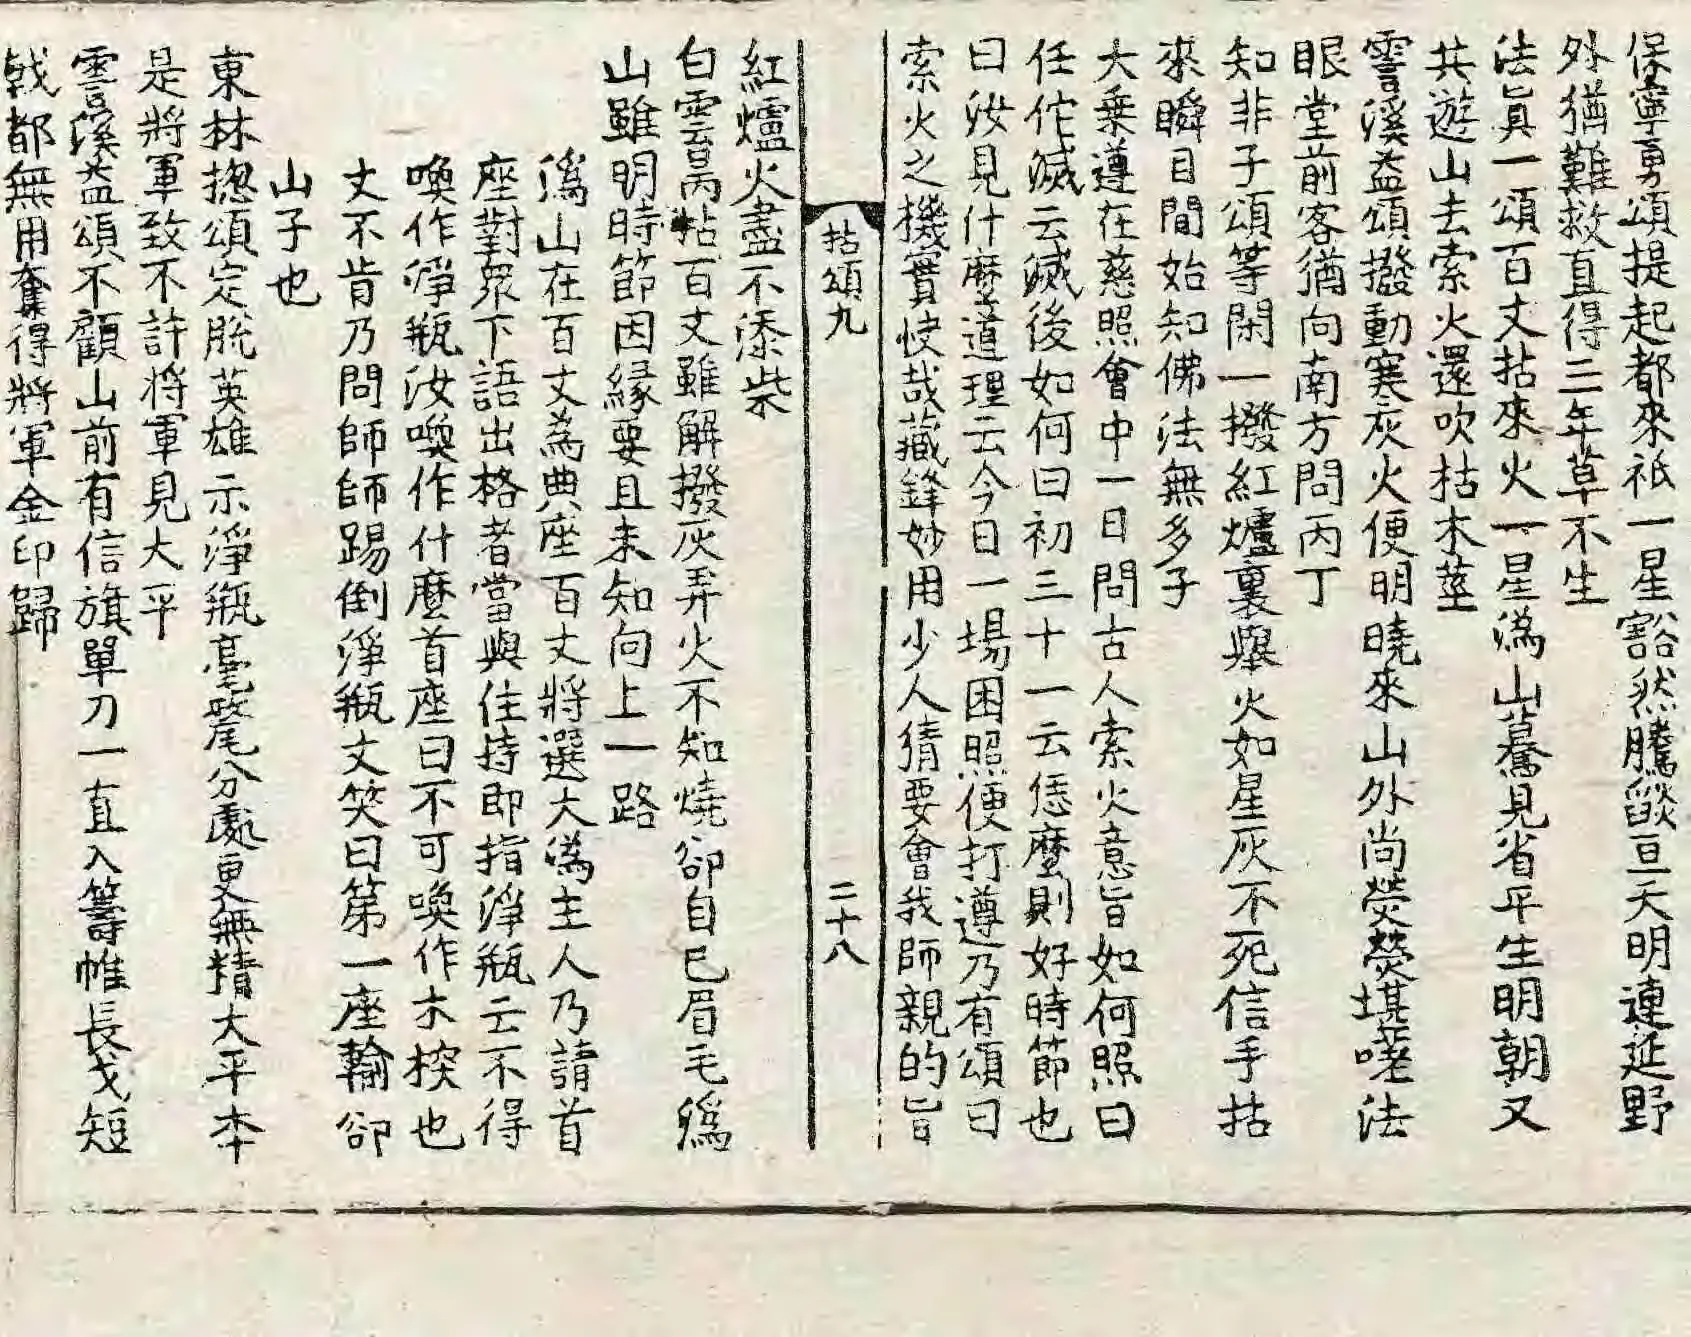 保寧勇頌提起都來祇一星豁然騰燄亘天明連延野
外猶難救直得三年草不生
法眞一頌百丈拈來火一星溈山驀見省平生明朝又
共遊山去索火還吹枯木莖
霅溪益頌撥動寒灰火便明曉來山外尚熒熒堪嗟法
眼堂前客猶向南方問丙丁
知非子頌等閑一撥紅爐裏擧火如星灰不死信手拈
來瞬目間始知佛法無多子
大乗遵在慈照會中一日問古人索火意旨如何照曰
任佗滅云滅後如何曰初三十一云恁麼則好時節也
曰汝見什麼道理云今日一場困照便打遵乃有頌曰
索火之機實快哉藏鋒妙用少人猜要會我師親的旨
拈頌九 二十八
紅爐火盡不添柴
白雲昺拈百丈雖解撥灰弄火不知燒卻自己眉毛溈
山雖明時節因縁要且未知向上一路
溈山在百丈為典座百丈將選大溈主人乃請首
座對衆下語出格者當與住持即指淨瓶云不得
喚作淨瓶汝喚作什麼首座曰不可喚作木㮇也
丈不肯乃問師師踢倒淨瓶丈笑曰第一座輸卻
山子也
東林揔頌定脫英雄示淨瓶毫氂分處更無精大平本
是將軍致不許将軍見大平
霅溪益頌不顧山前有信旗單刀一直入籌帷長戈短
戟都無用奪得將軍金印歸